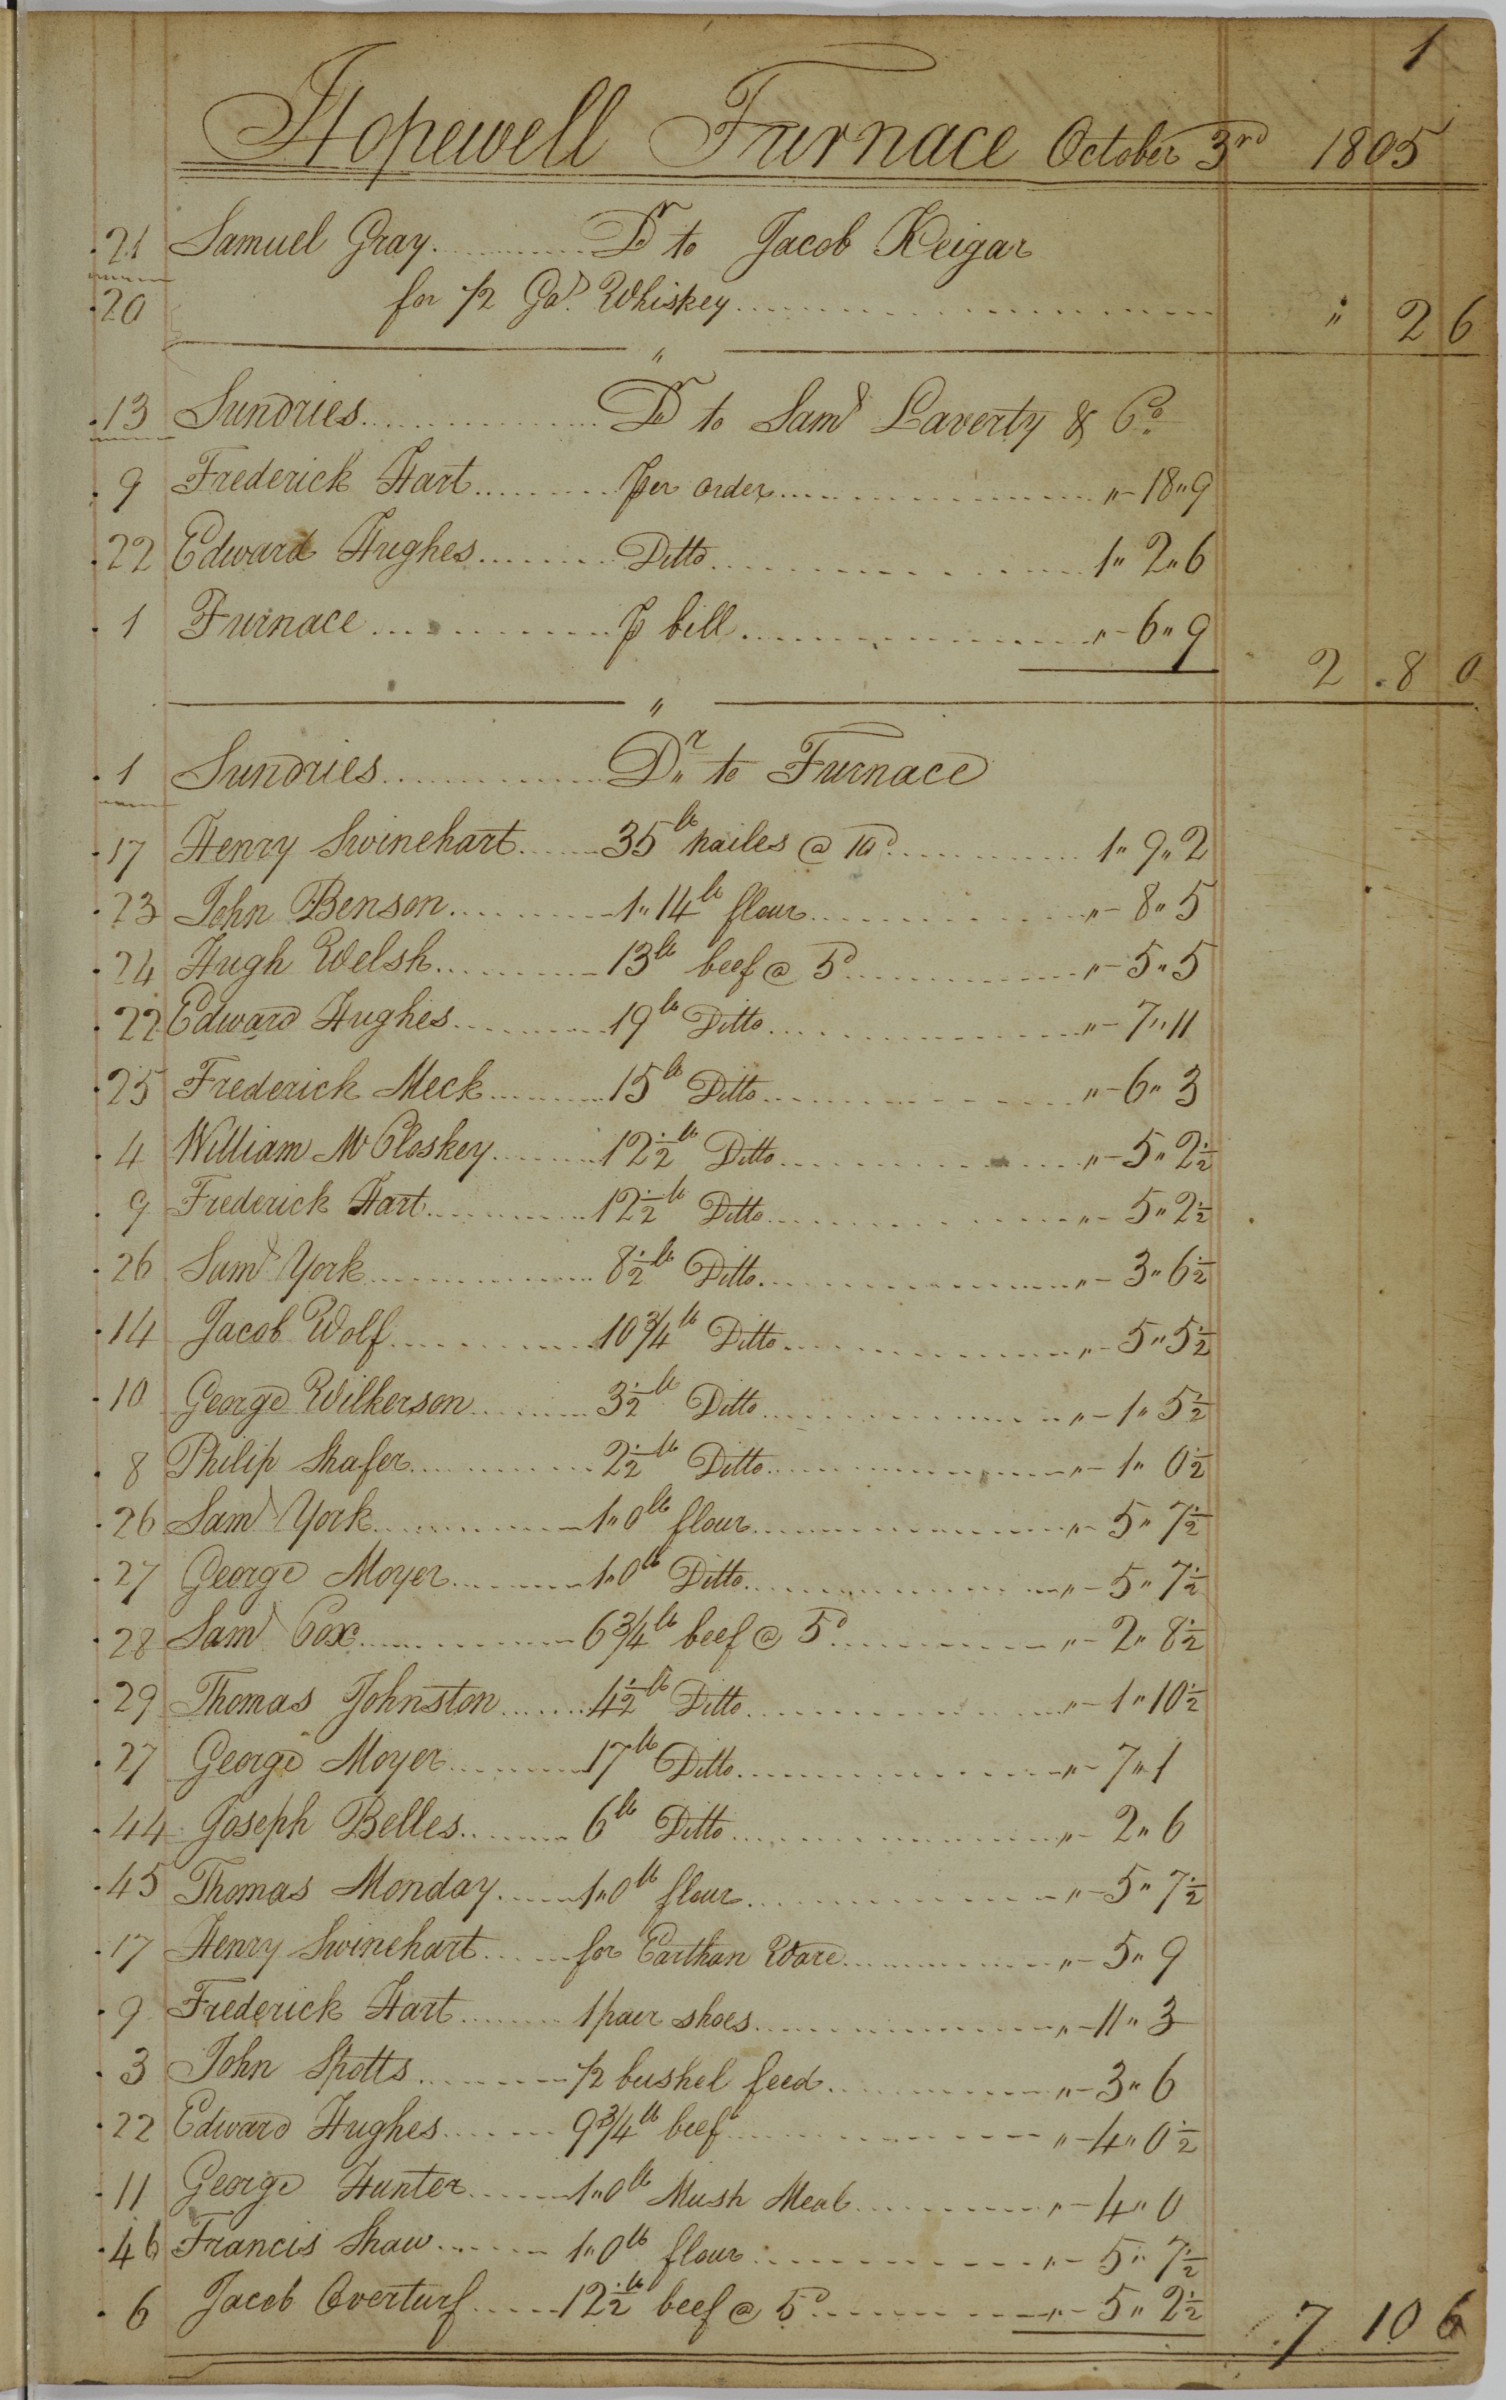 1
Hopewell Furnace October 3rd 1805
21 Samuel Gray Dr to Jacob Keigar
20 for 1/2 Gal. Whiskey " 2 6
"
13 Sundries Dr to Saml Laverty & Co.
9 Frederick Hart per order "-18"9
22 Edward Hughes Ditto 1"2"6
1 Furnace ⅌ bill "-6"9
2 .8 0
"
1 Sundries Dr to Furnace
17 Henry Swinehart 35lb nailes @ 10d 1"9"2
23 John Benson 1"14lb flour "-8"5
24 Hugh Welsh 13lb beef @ 5d "-5"5
22 Edward Hughes 19lb Ditto "-7"11
25 Frederick Meck 15lb Ditto "-6"3
4 William McCloskey 12½lb Ditto "-5"2½
9 Frederick Hart 12½lb Ditto "-5"2½
26 Saml York 8½lb Ditto "-3"6½
14 Jacob Wolf 10¾lb Ditto "-5"5½
10 George Wilkerson 3½lb Ditto "-1"5½
8 Philip Shafer 2½lb Ditto "-1"0½
26 Saml York 1"0lb flour "-5"7½
27 George Moyer 1"0lb Ditto "-5"7½
28 Saml Cox 6¾lb beef @ 5d "-2"8½
29 Thomas Johnston 4½lb Ditto "-1"10½
27 George Moyer 17lb Ditto "-7"1
44 Joseph Belles 6lb Ditto "-2"6
45 Thomas Monday 1"0lb flour "-5"7½
17 Henry Swinehart for Earthan Ware "-5"9
9 Frederick Hart 1 paer shoes "-11"3
3 John Spotts 1/2 bushel feed "-3"6
22 Edward Hughes 9¾lb beef "-4"0½
11 George Hunter 1"0lb Mush Meal "-4"0
46 Francis Shaw 1"0lb flour "-5"7½
6 Jacob Overturf 12½lb beef @ 5d "-5"2½
7 10 6